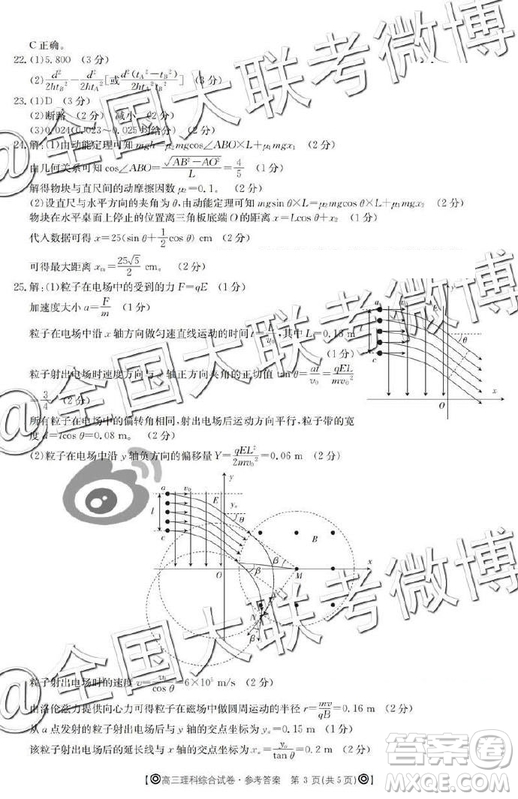 C正确。
22.(1)5.800 (3分)
(2)d²/2ht_B² − d²/2ht_A² [或 d²(t_A²−t_B²)/2ht_A²t_B²] (3分)
23.(1)D (3分)
(2)断路 (2分) 减小 (2分)
(3)0.024(0.023~0.025均给分) (2分)
24.解:(1)由动能定理可知 mgh=μ₂mgcos∠ABO×L+μ₁mgx₁ (2分)
由几何关系可知 cos∠ABO=√(AB²−AO²)/L=4/5 (1分)
解得物块与直尺间的动摩擦因数 μ₂=0.1。 (2分)
(2)设直尺与水平方向的夹角为 θ,由动能定理可知 mgsin θ×L=μ₂mgcos θ×L+μ₁mgx₂ (2分)
物块在水平桌面上停止的位置离三角板底端 O 的距离 x=Lcos θ+x₂ (2分)
代入数据可得 x=25(sin θ+1/2 cos θ) cm (2分)
可得最大距离 xₘ=25√5/2 cm。 (2分)
25.解:(1)粒子在电场中的受到的力 F=qE (1分)
加速度大小 a=F/m (1分)
粒子在电场中沿 x 轴方向做匀速直线运动的时间 t=L/v₀,其中 L=0.15 m
(1分)
粒子射出电场时速度方向与 x 轴正方向夹角的正切值 tan θ=at/v₀=qEL/mv₀²
=3/4 (1分)
所有粒子在电场中的偏转角相同,射出电场后运动方向平行,带电粒子带的宽
度 d=lcos θ=0.08 m。 (2分)
(2)粒子在电场中沿 y 轴负方向的偏移量 Y=qEL²/2mv₀²=0.06 m (2分)
粒子射出电场时的速度 v=v₀/cos θ=6×10⁵ m/s (2分)
由洛伦兹力提供向心力可得粒子在磁场中做圆周运动的半径 r=mv/qB=0.16 m (2分)
从 a 点发射的粒子射出电场后与 y 轴的交点坐标为 y₀=0.15 m (1分)
该粒子射出电场后的延长线与 x 轴的交点坐标为 x₀=y₀/tan θ=0.2 m (2分)
【◎高三理科综合试卷·参考答案 第 3 页(共 5 页)◎】
@全国大联考微博
@全国大联考微博
@全国大联考微博
答案圈